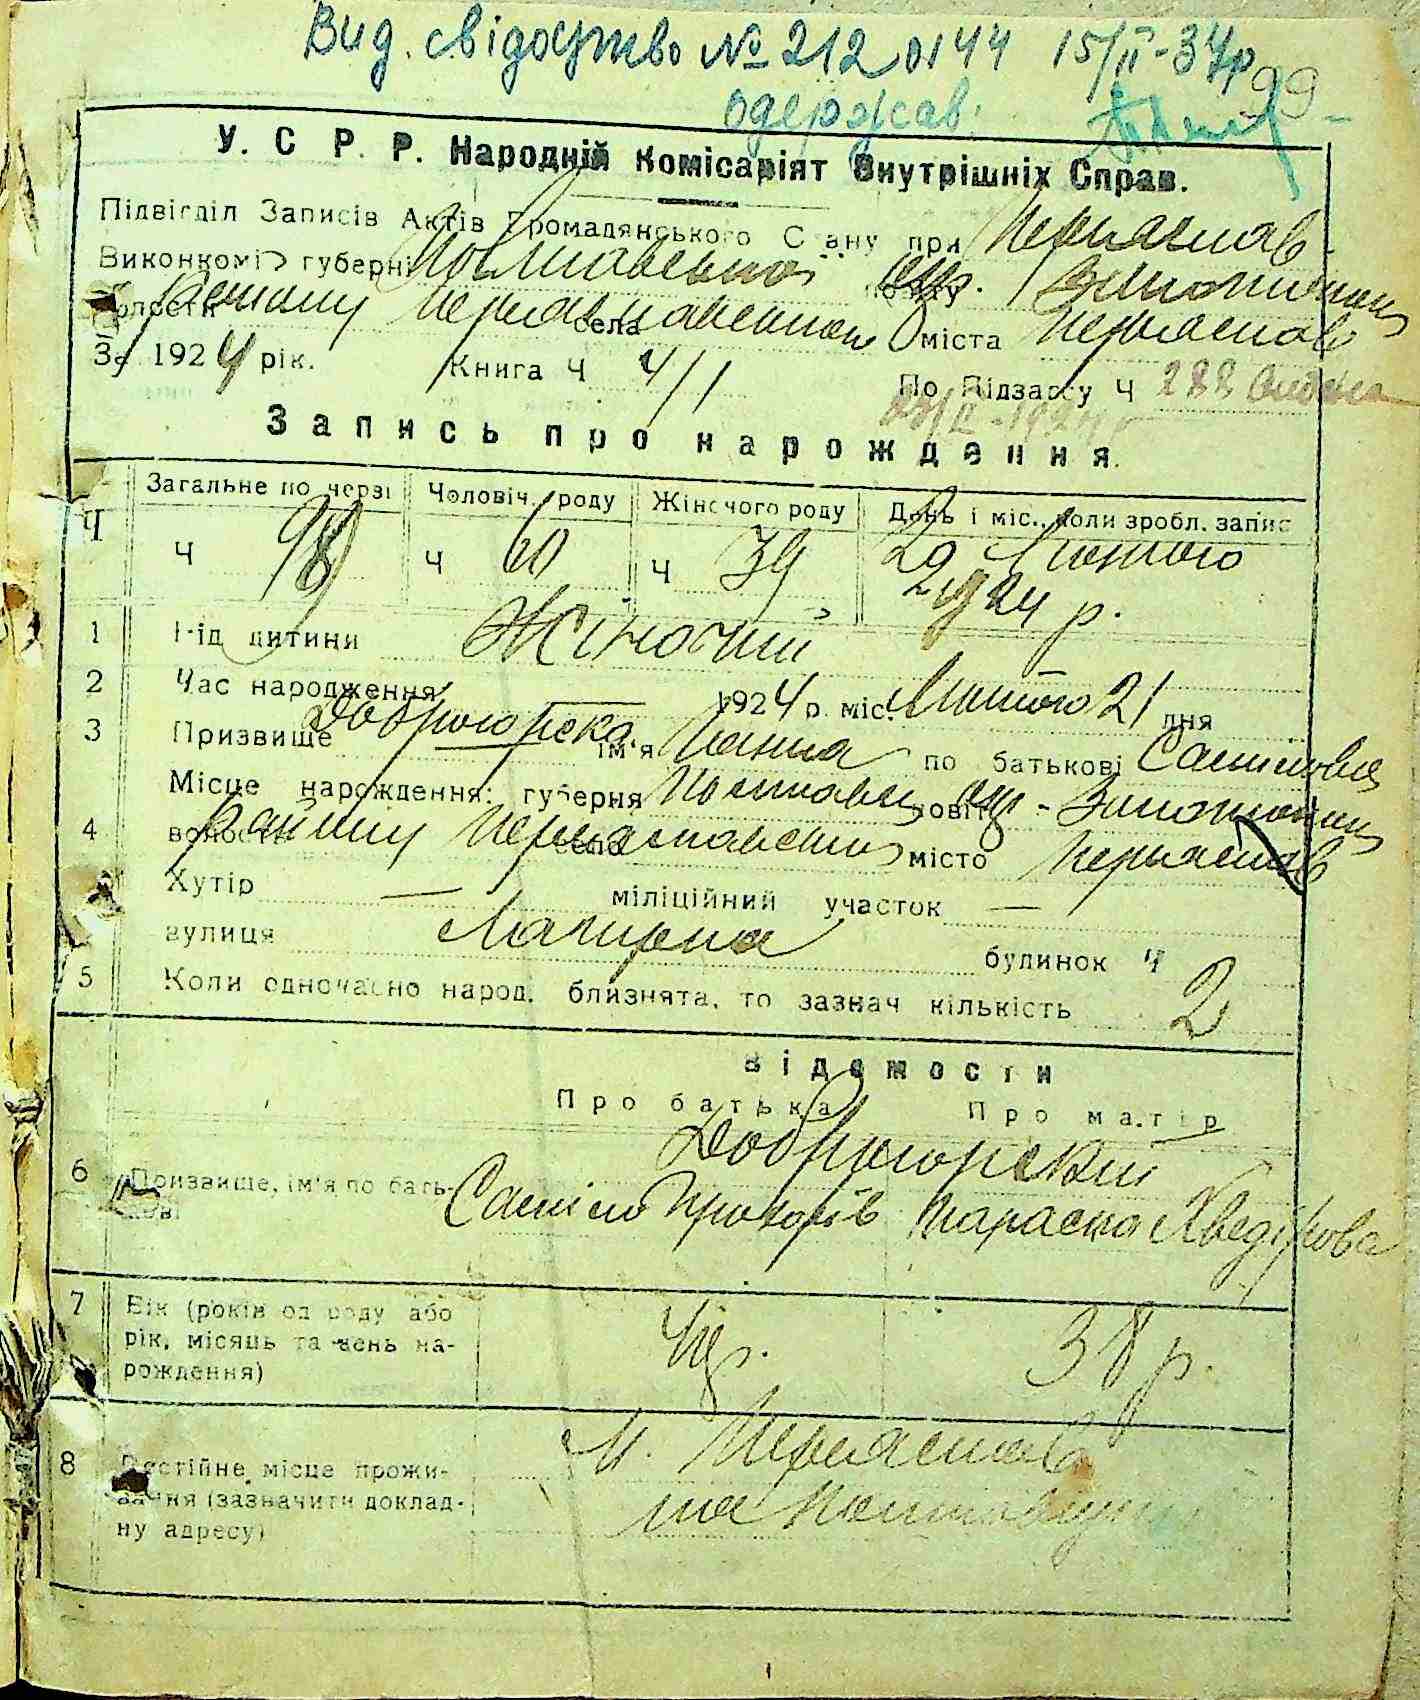 Вид. свідоцтво № 2120144 15/II-34р
99
одержав:
У. С Р. Р. Народній Комісаріят Внутрішніх Справ.
Підвідділ Записів Актів Громадянського Стану при Переяслав-
Виконкомі губерні Полтавської окр. повіту Золотоніськ
волости Району Переяславського села міста Переяслав
За 1924 рік. Книга Ч 4/1 По Підзагсу Ч 288
Запись про нарождення.
Загальне по черзі Чоловіч. роду Жіночого роду День і міс., коли зробл. запис
Ч Ч Ч 60 Ч 39 29 Лютого
1924 р.
1 Рід дитини Жіночий
2 Час народження: 1924 р. міс. Лютого 21 дня
3 Призвище Доброгорска ім'я Ганна по батькові Самійлова
Місце нарождення: губерня Полтавськ повіт окр- Золотоніськ
4 волость Району Переяславськ село місто Переяслав
Хутір — міліційний участок —
вулиця будинок Ч 2
5 Коли одночасно народ. близнята, то зазнач кількість
Відомости
Про батька Про матір
Доброгорский
6 Призвище, ім'я по бать-
кові Самійло Прохорів Параска Хведірова
7 Вік (років од роду або
рік, місяць та день на-
рождення) 38 р.
8 Постійне місце прожи-
вання (зазначити доклад-
ну адресу)
М. Переяслав
на